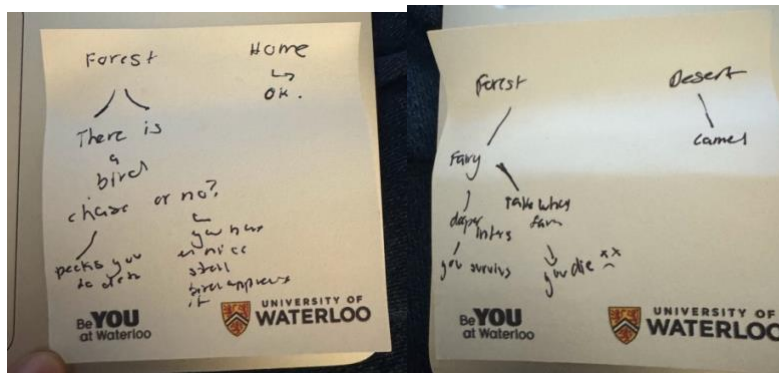 Forest
Home
↳
OK.
There is
a
bird
chase or no?
pecks you
to death
you have
a nice
stroll
bird approves
it
Be YOU
at Waterloo
UNIVERSITY OF
WATERLOO
Forest
Desert
camel
Fairy
deeper
take
you survive
you die xx
Be YOU
at Waterloo
UNIVERSITY OF
WATERLOO